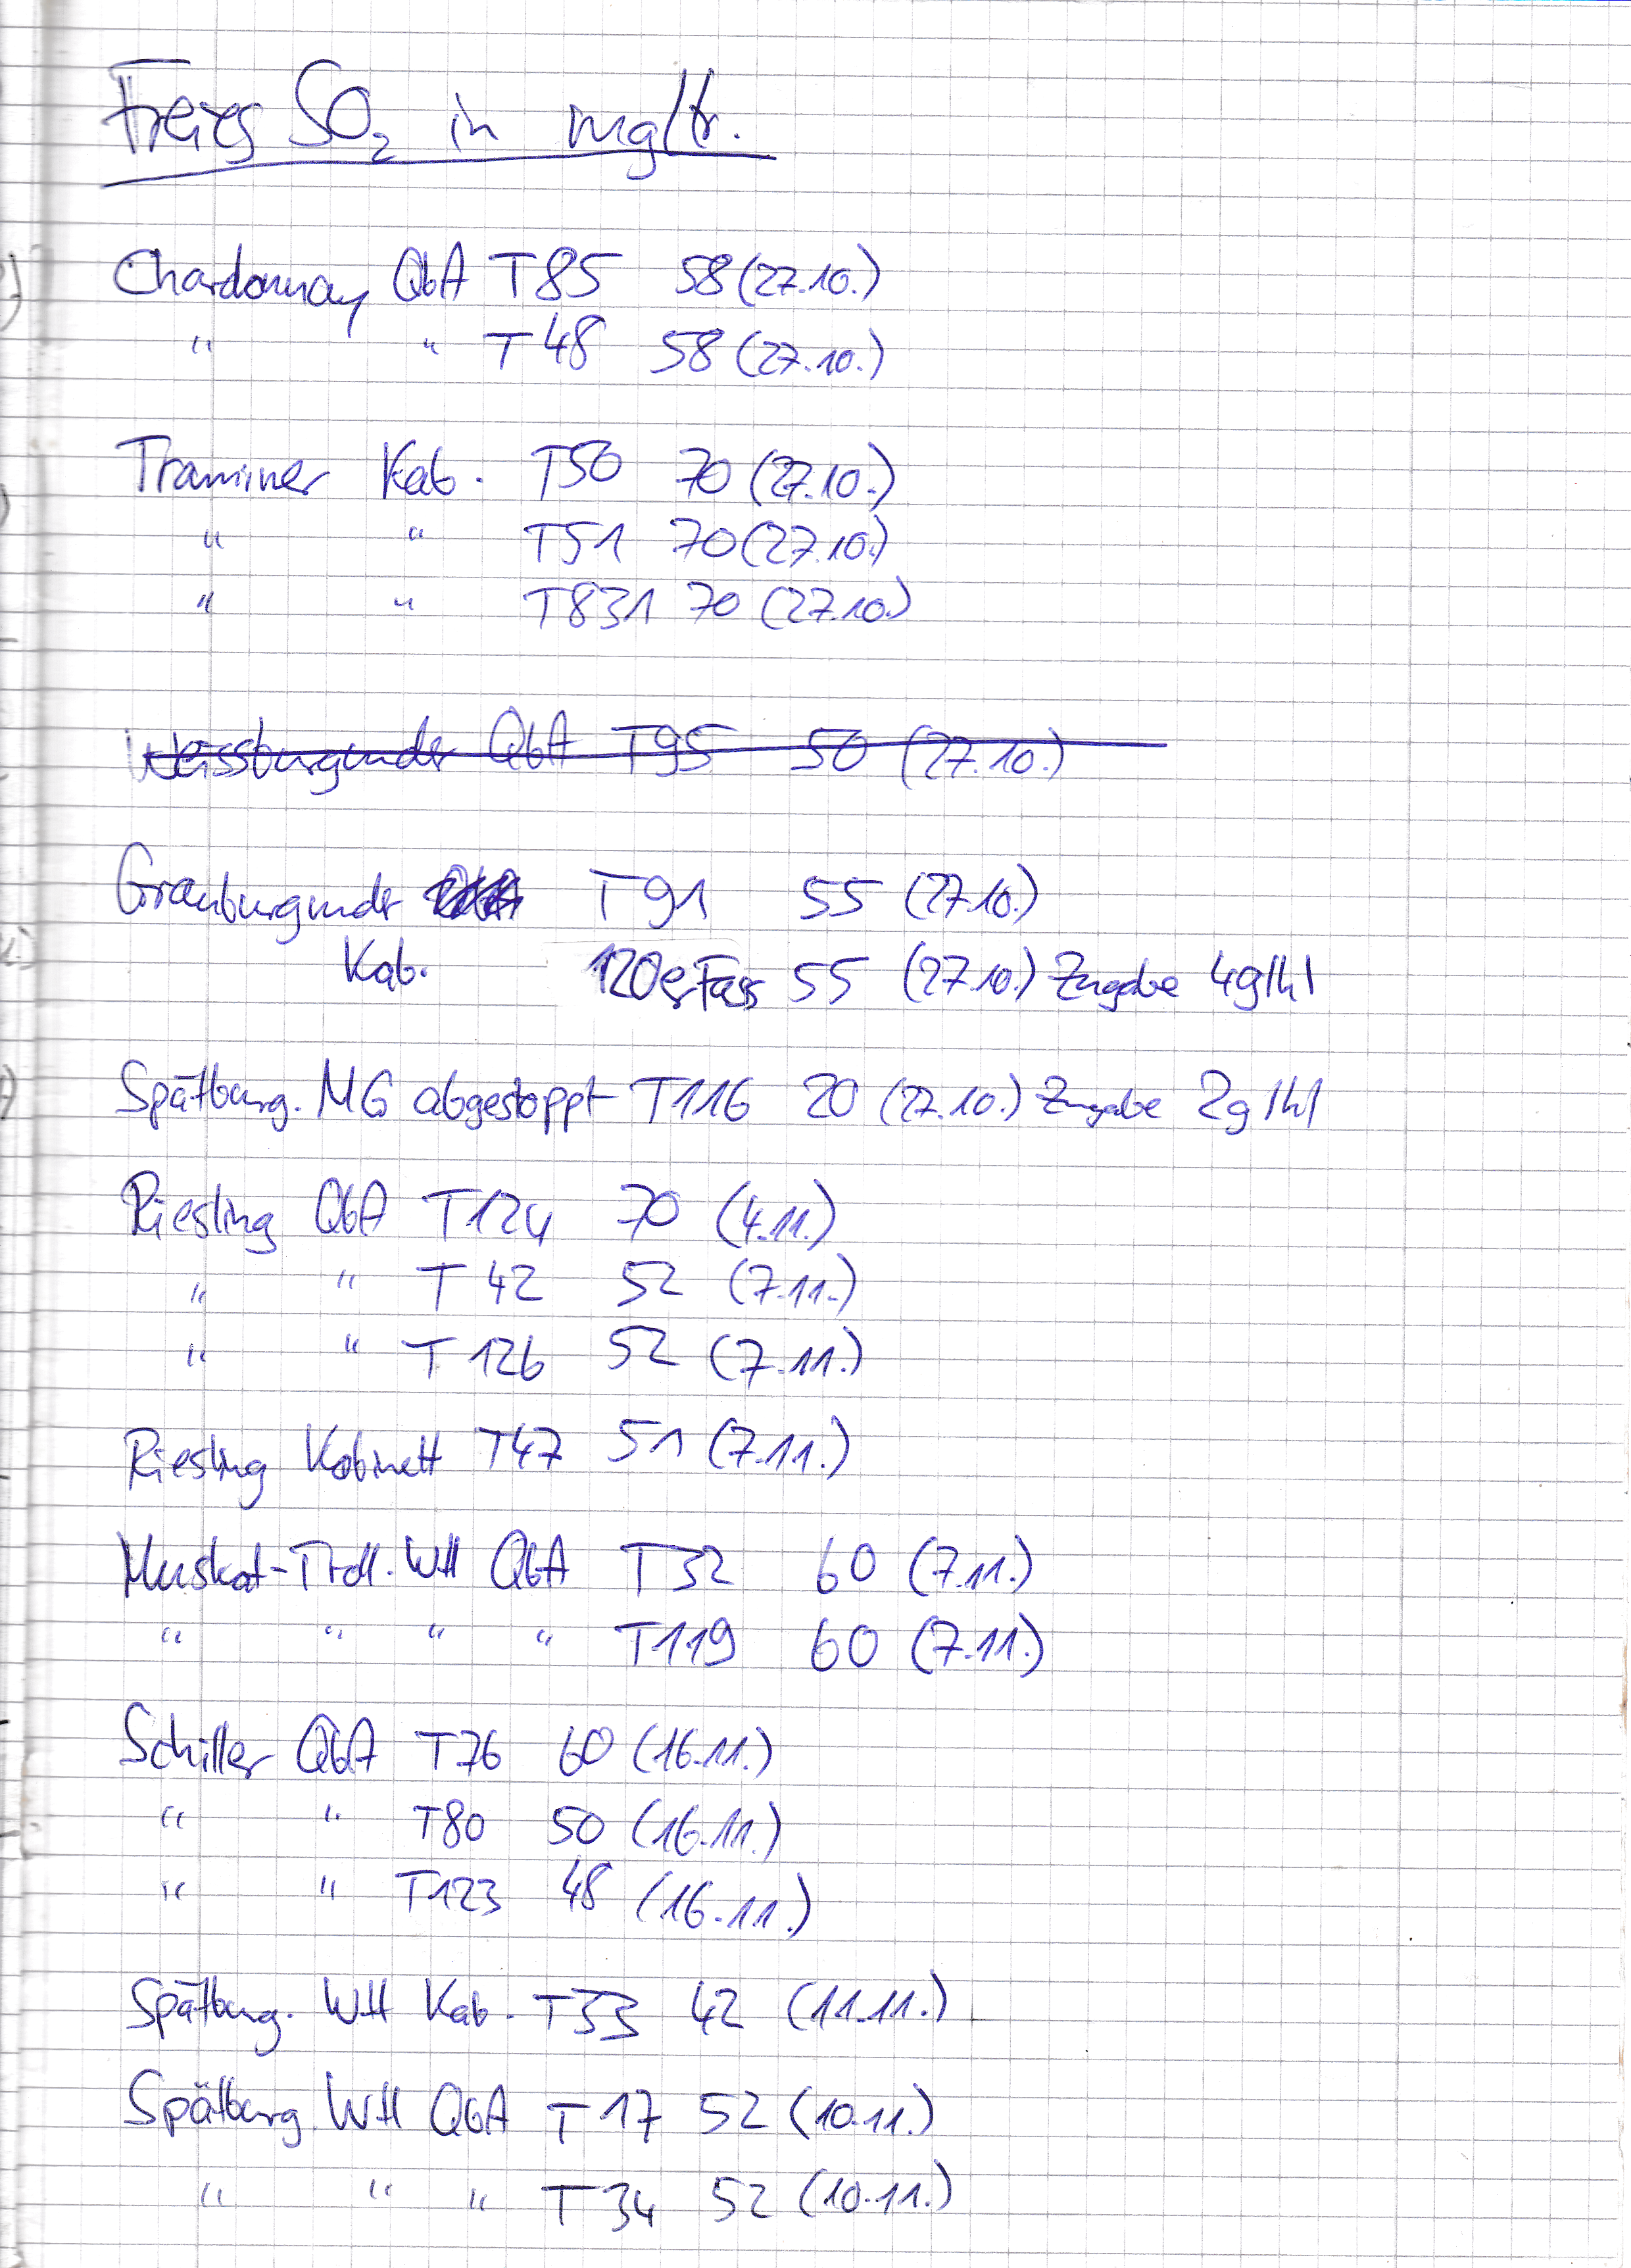 Freies SO₂ in mg/ltr.
Chardonnay QbA T85 58 (27.10.)
" " T 48 58 (27.10.)
Traminer Kab. T50 70 (27.10.)
" " T51 70 (27.10.)
" " T831 70 (27.10.)
Weissburgunder QbA T95 50 (27.10.)
Grauburgunder T91 55 (27.10.)
Kab. 120er Fass 55 (27.10.) Zugabe 4g/hl
Spätburg. MG abgestoppt T116 20 (27.10.) Zugabe 2g/hl
Riesling QbA T124 70 (4.11.)
" " T 42 52 (7.11.)
" " T 126 52 (7.11.)
Riesling Kabinett T47 51 (7.11.)
Muskat-Troll. WH QbA T32 60 (7.11.)
" " " " T119 60 (7.11.)
Schiller QbA T76 60 (16.11.)
" " T80 50 (16.11.)
" " T123 48 (16.11.)
Spätburg. WH Kab. T33 42 (11.11.)
Spätburg. WH QbA T 17 52 (10.11.)
" " " T 34 52 (10.11.)